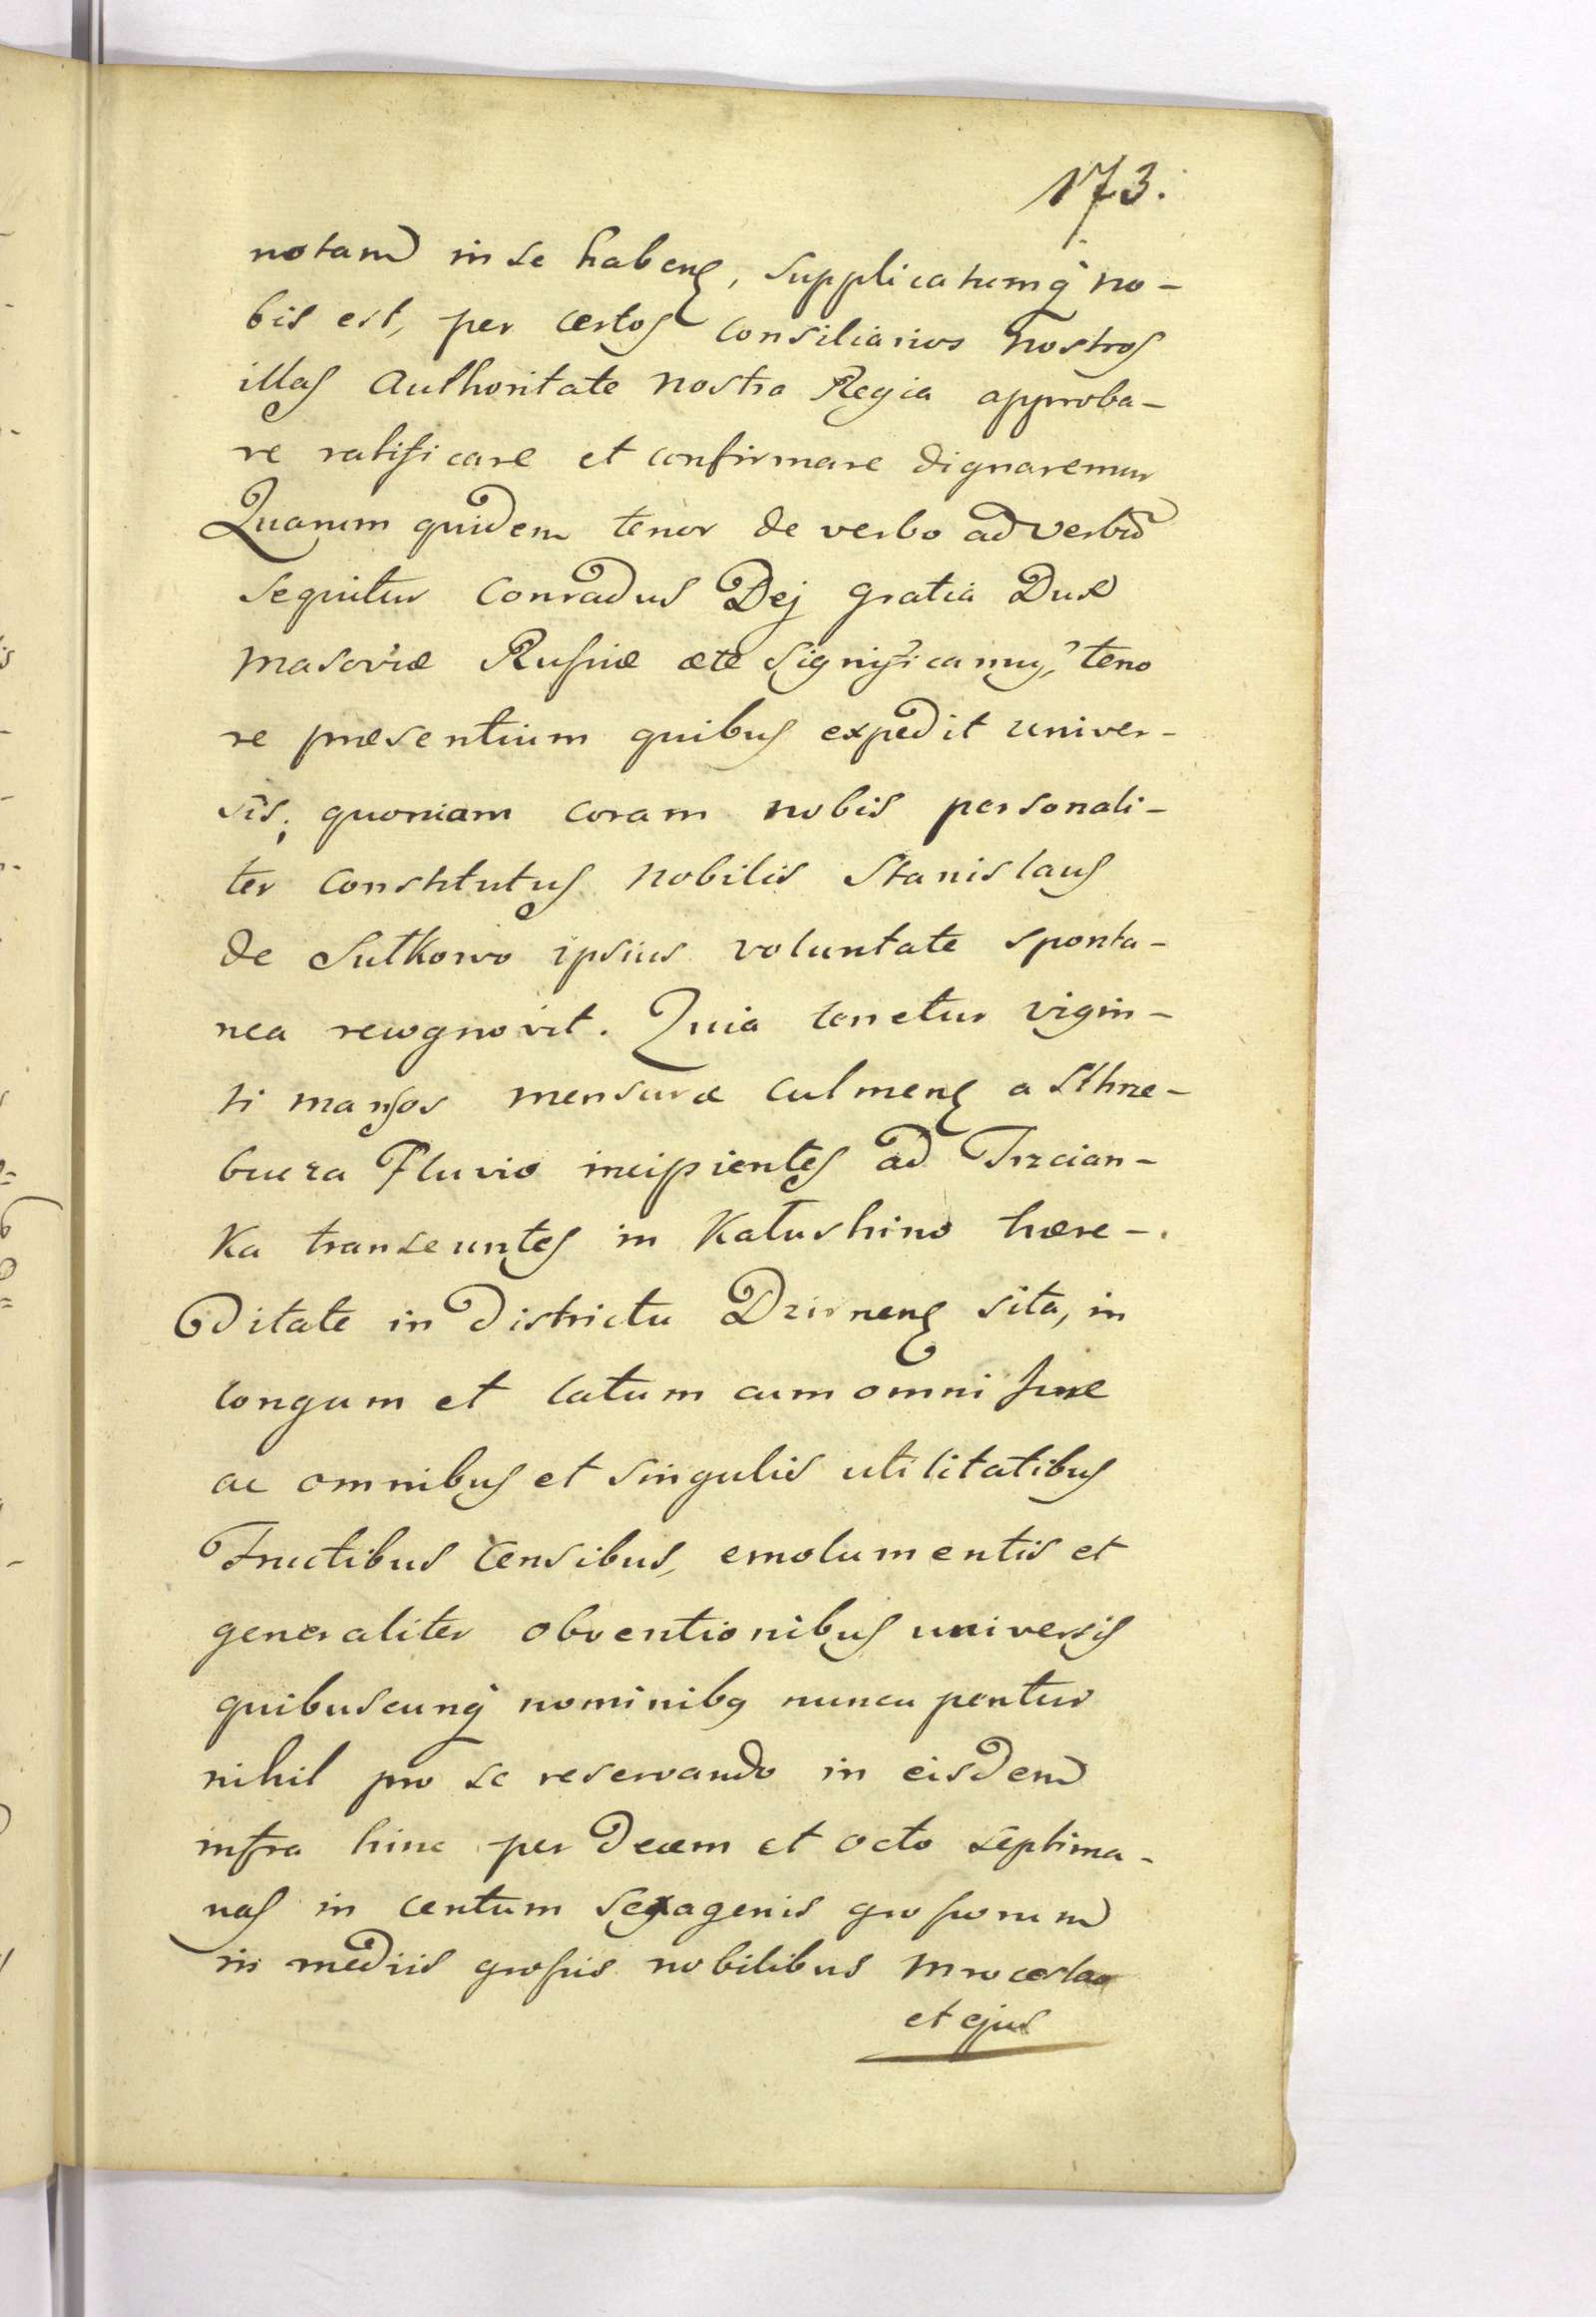 173.
notam in se habens, supplicatumq no-
bis est, per certos Consiliarios Nostros
illas Authoritate Nostra Regia approba-
re ratificare et confirmare dignaremur
Quarum quidem tenor de verbo ad verbũ
sequitur Conradus Dej gratia Dux
Masoviæ Russiæ etc Significamus, teno
re præsentium quibus expedit univer-
sis; quoniam coram nobis personali-
ter constitutus Nobilis Stanislaus
de Sutkowo ipsius voluntate sponta-
nea recognovit. Quia tenetur vigin-
ti mansos mensuræ Culmens a Sthre-
bucza Fluvio incipientes ad Trzcian-
ka transeuntes in Katushino hære-
ditate in districtu Dzirnens sita, in
longum et latum cum omni jure
ac omnibus et singulis utilitatibus
Fructibus Censibus, emolumentis et
generaliter obventionibus universis
quibuscunq nominibq nuncupentur
nihil pro se reservando in eisdem
infra hinc per decem et octo septima-
nas in centum sexagenis grossorum
in mediis grossis nobilibus Mroceslao
et ejus